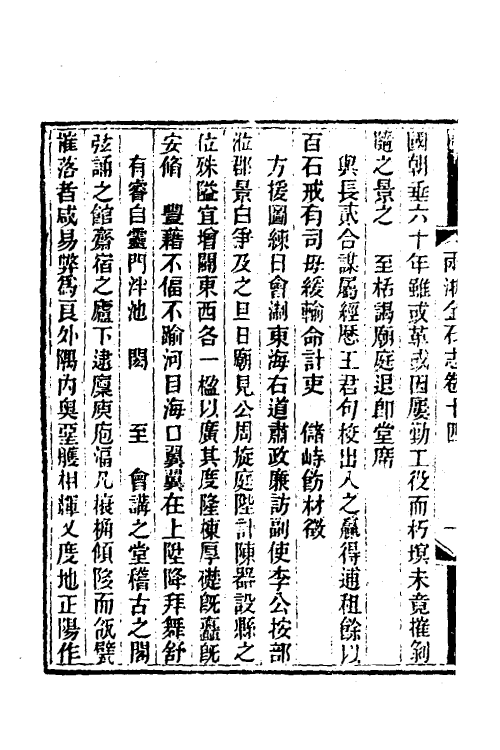 兩浙金石志卷十四
一
國朝垂六十年雖或革或因屢勤工役而朽壞未竟摧剝
隨之景之　至栝謁廟庭退卽堂席
與長貳合謀屬經歷王君句校出入之羸得逋租餘以
百石戒有司毋緩輸命計吏　儲峙飭材徵
方援圖練日會浙東海右道肅政廉訪副使李公按部
涖郡景白爭及之旦日廟見公周旋庭陛計陳器設縣之
位殊隘宜增闢東西各一楹以廣其度隆棟厚礎旣磊旣
安脩　豐藉不偪不踰河目海口翼翼在上陞降拜舞舒
有睿自靈門泮池　閎　至　會講之堂稽古之閣
弦誦之館齋宿之廬下逮廩庾庖湢凡榱桷傾陊而瓴甓
摧落者咸易弊爲良外隅內奧堊雘相輝又度地正陽作